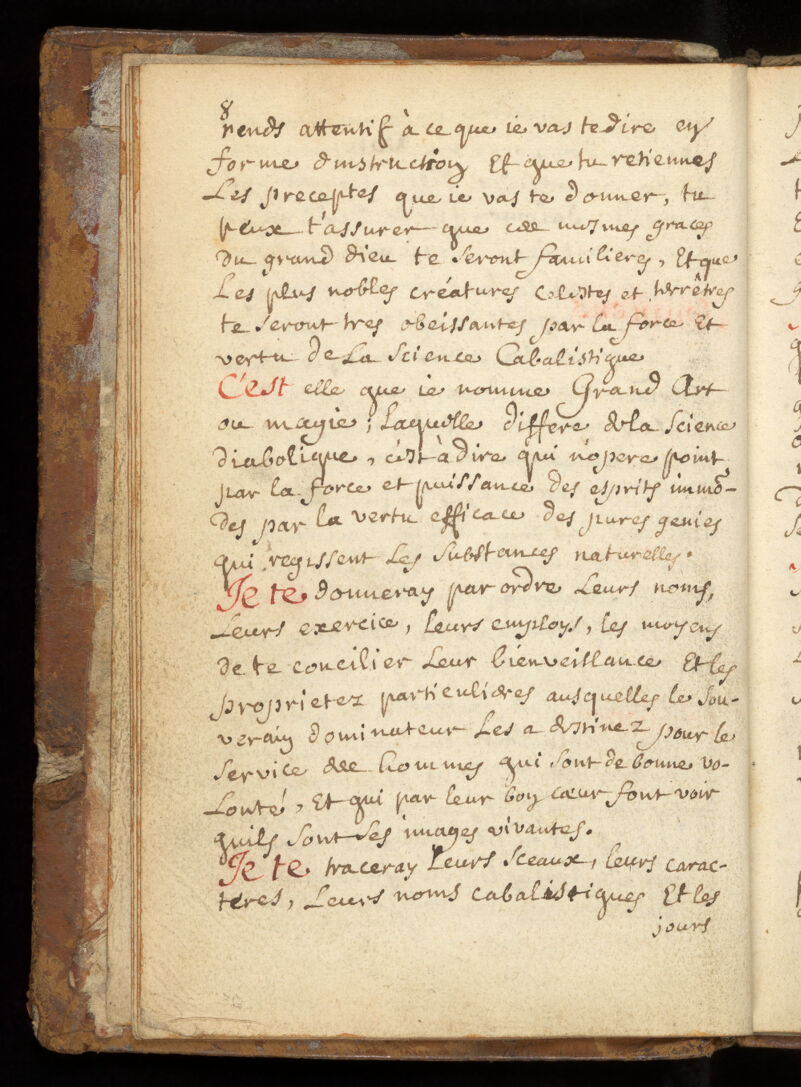 8
rends attentif à ce que ie vas te dire en
forme d'instruction Et que tu retiennes
Les preceptes que ie vas te donner, tu
peux t'assurer que les mesmes graces
Du grand dieu te seront familieres, Et que
Les plus nobles créatures celestes et terrêtres
te seront tres obeissantes par la force Et
vertu de La Science Cabalistique
C'est elle que ie nomme Grand Art
ou magie; Laquelle differe de la Science
Diabolique, c'est à dire qui n'opere point
par la force et puissance des esprits immõ-
des par la vertu efficace des pures genies
qui regissent Les Substances naturelles.
Je te donneray par ordre Leurs noms,
Leurs exercice, leurs employs, les moyens
de te concilier Leur bienveillance Et les
proprietez particulieres ausquelles le Sou-
verain dominateur Les a destinez pour le
Service des hommes qui sont de bonne vo-
Lonté, Et qui par leur bon cœur font voir
quils sont ses images vivantes.
Je te traceray Leurs Sceaux, leurs carac-
teres, Leurs noms cabalistiques Et les
jours